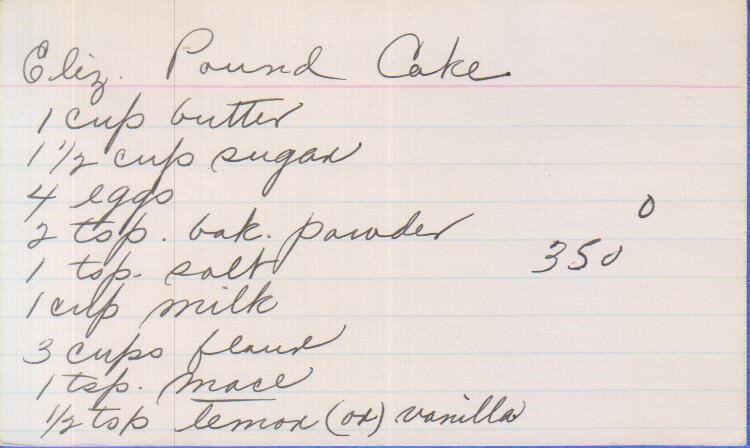 Eliz. Pound Cake
1 cup butter
1 1/2 cup sugar
4 eggs
2 tsp. bak. powder
350°
1 tsp. salt
1 cup milk
3 cups flour
1 tsp. mace
1/2 tsp lemon (or) vanilla